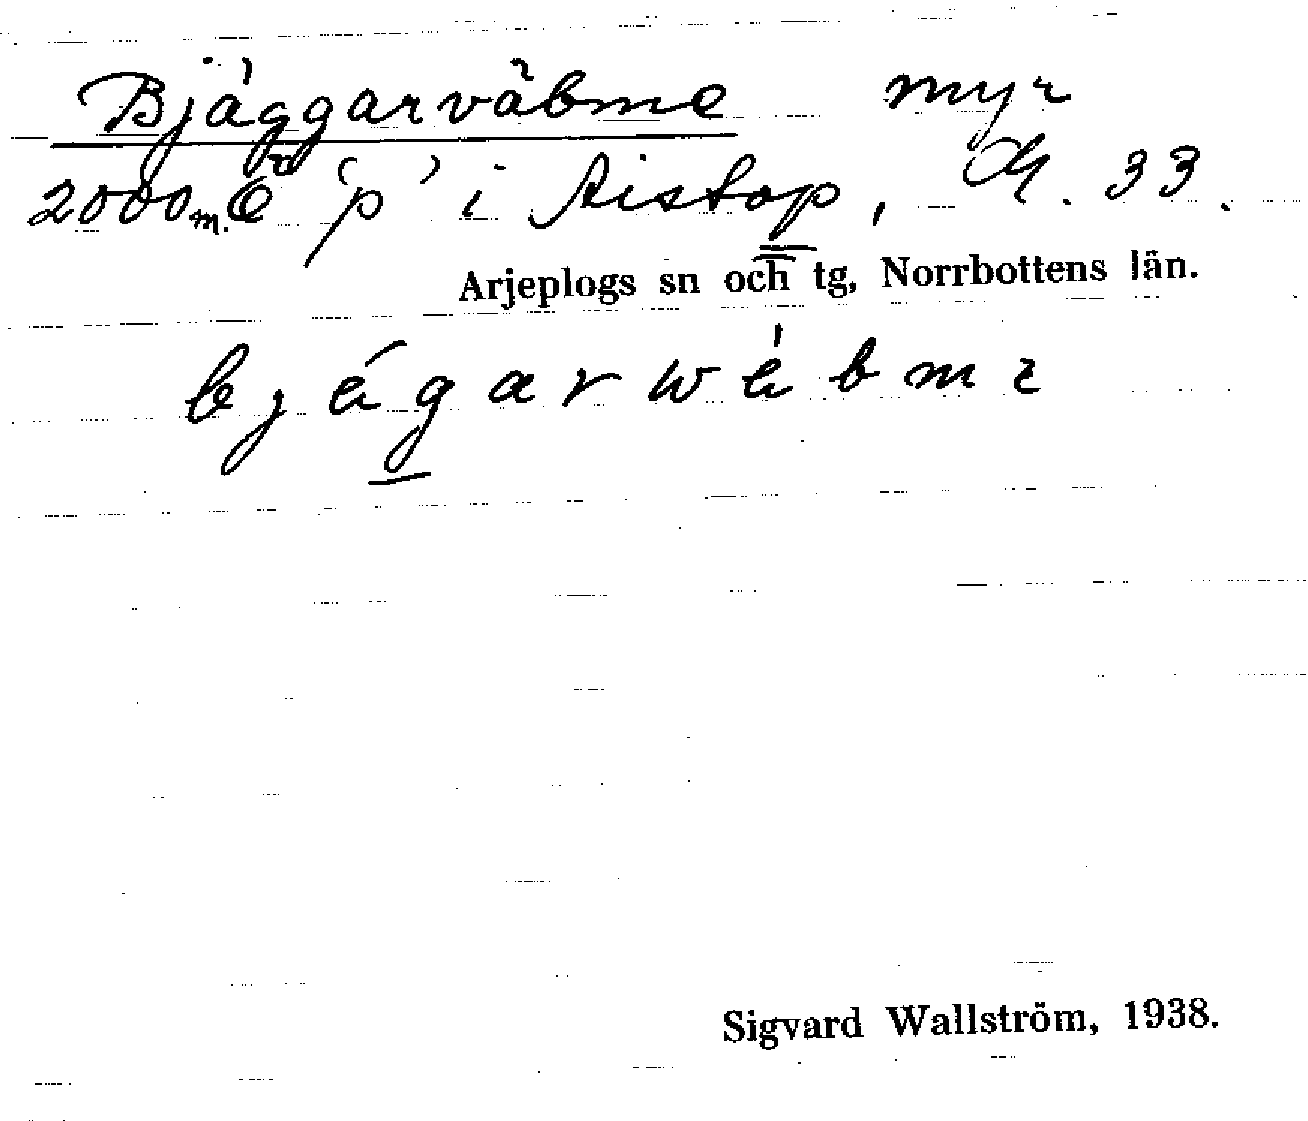 Bjäggarväbme myr
2000 m. Ö 'p' i Aistop, 33.
Arjeplogs sn och tg, Norrbottens län.
b j a g a r w a b m ɛ
Sigvard Wallström, 1938.